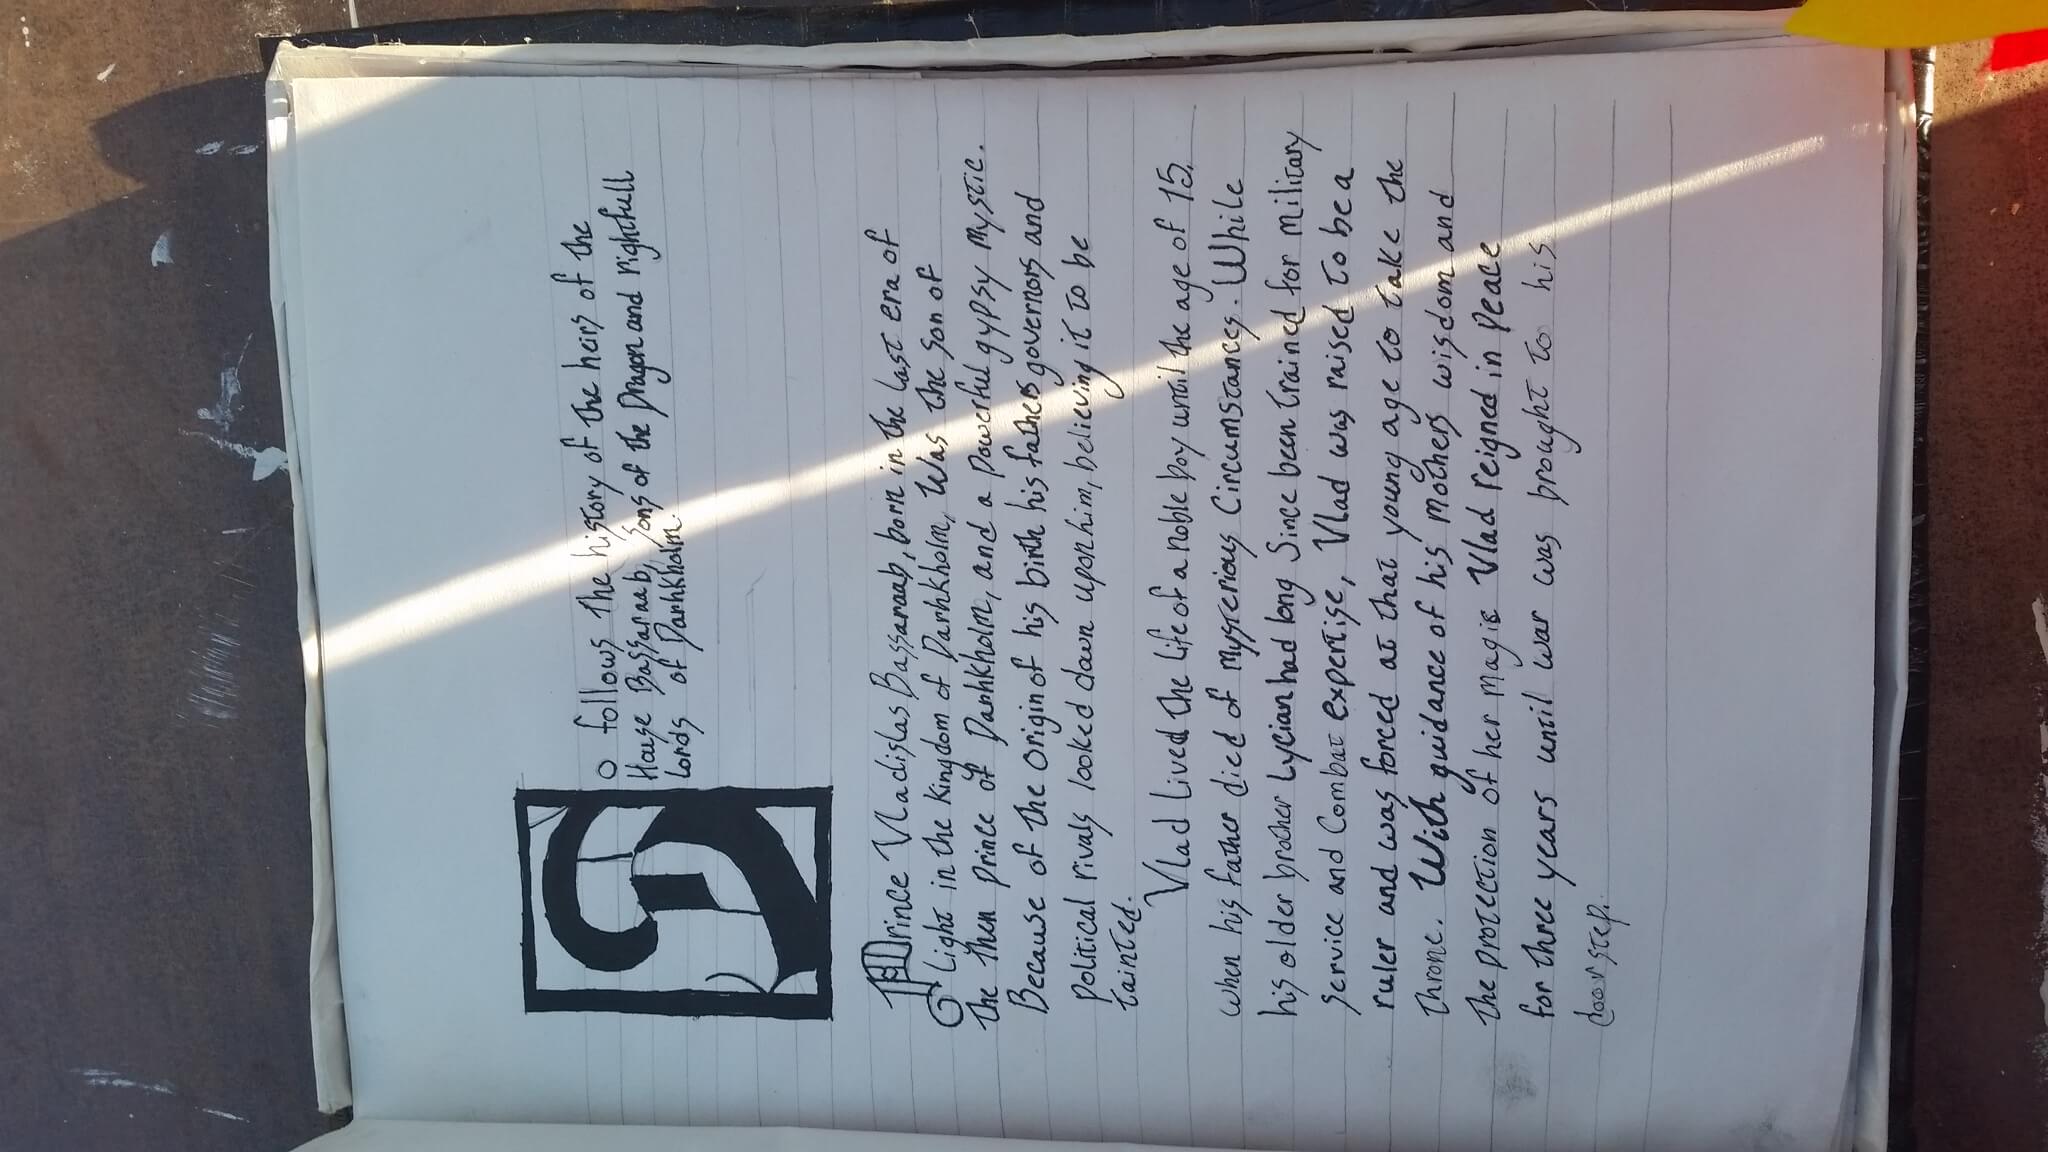 So follows the history of the heirs of the
House Bassaraab, Sons of the Dragon and rightfull
Lords of Darhkholm.
Prince Vladislas Bassaraab, born in the last era of
Light in the Kingdom of Darhkholm, Was the Son of
the then Prince of Darhkholm, and a Powerful gypsy Mystic.
Because of the Origin of his birth his fathers governors and
Political rivals looked down upon him, believing it to be
tainted.
Vlad Lived the Life of a noble boy until the age of 15.
when his father died of Mysterious Circumstances. While
his older brother Lycian had long Since been trained for Military
Service and Combat expertise, Vlad was raised to be a
ruler and was forced at that young age to take the
throne. With guidance of his mothers wisdom and
the protection of her magic Vlad reigned in Peace
for three years until war was brought to his
door step.